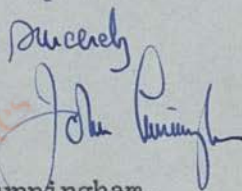 Sincerely
John Cunningham
unningham